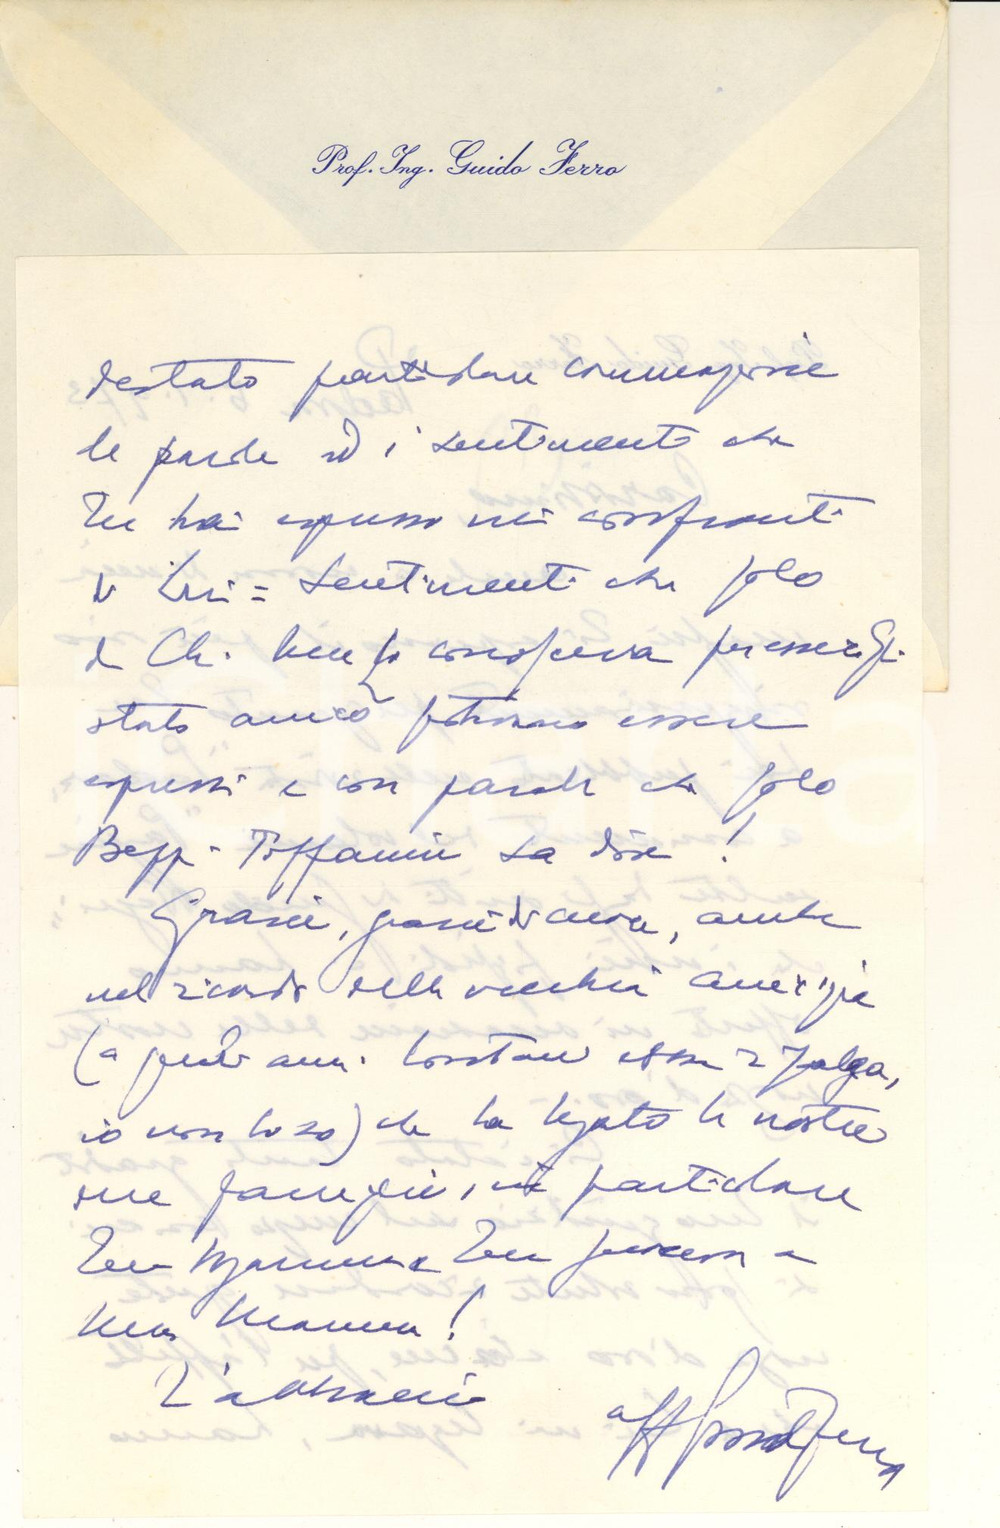 Prof. Ing. Guido Ferro
destato particolare commozione
le parole ed i sentimenti che
Tu hai espresso nei confronti
di Lui = sentimenti che solo
di Chi. lo conosceva per essergli
stato amico potevano essere
espressi e con parole che solo
Beppi Toffanin sa dire !
Grazie, grazie di cuore, anche
nel ricordo della vecchia amicizia
(a quali anni essa risalga,
io non lo so) che ha legato le nostre
due famiglie, in particolare
Tua Mamma e Tua a
mia Mamma !
T'abbraccio
aff Guido Ferro